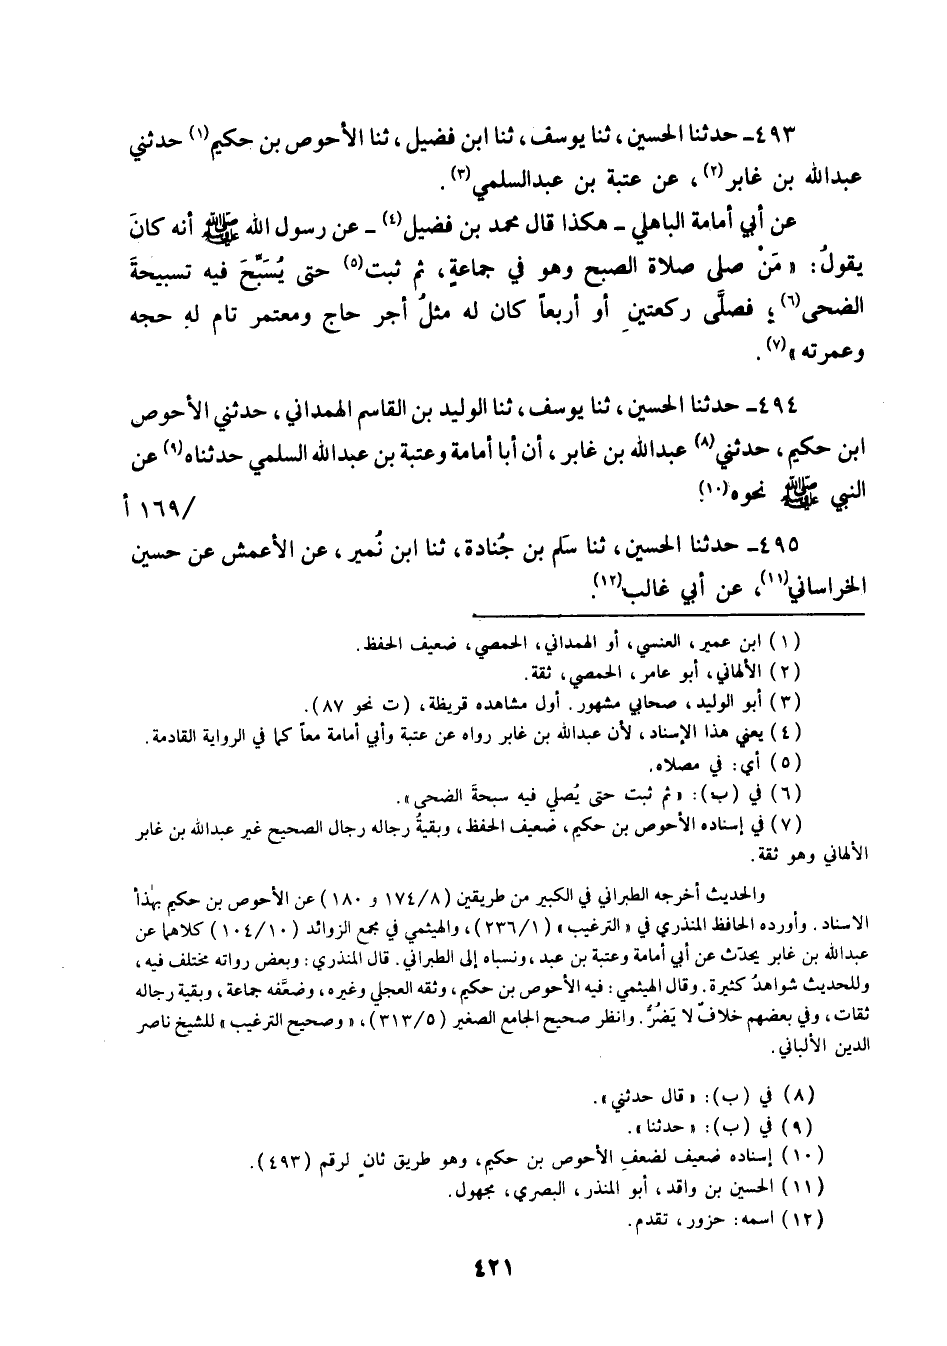 ٤٩٣ـ حدثنا الحسين، ثنا يوسف، ثنا ابن فضيل، ثنا الأحوص بن حكيم(١) حدثني
عبدالله بن غابر(٢)، عن عتبة بن عبدالسلمي(٣).
عن أبي أمامة الباهلي ـ هكذا قال محمد بن فضيل(٤) ـ عن رسول الله ﷺ أنه كانَ
يقولُ: «مَنْ صلى صلاة الصبح وهو في جماعةٍ، ثم ثبت(٥) حتى يُسَبِّحَ فيه تسبيحةَ
الضحى(٦)؛ فصلَّى ركعتينِ أو أربعاً كان له مثلُ أجر حاج ومعتمر تام لهِ حجه
وعمرته»(٧).
٤٩٤ـ حدثنا الحسين، ثنا يوسف، ثنا الوليد بن القاسم الهمداني، حدثني الأحوص
ابن حكيم، حدثني(٨) عبدالله بن غابر، أن أبا أمامة وعتبة بن عبدالله السلمي حدثناه(٩) عن
النبي ﷺ نحوه(١٠).
/١٦٩ أ
٤٩٥ـ حدثنا الحسين، ثنا سَلم بن جُنادة، ثنا ابن نُمير، عن الأعمش عن حسين
الخراساني(١١)، عن أبي غالب(١٢).
(١) ابن عمير، العنسي، أو الهمداني، الحمصي، ضعيف الحفظ.
(٢) الألهاني، أبو عامر، الحمصي، ثقة.
(٣) أبو الوليد، صحابي مشهور. أول مشاهده قريظة، (ت نحو ٨٧).
(٤) يعني هذا الإسناد، لأن عبدالله بن غابر رواه عن عتبة وأبي أمامة معاً كما في الرواية القادمة.
(٥) أي: في مصلاه.
(٦) في (ب): «ثم ثبت حتى يُصلي فيه سبحةَ الضحى».
(٧) في إسناده الأحوص بن حكيم، ضعيف الحفظ، وبقيةُ رجاله رجال الصحيح غير عبدالله بن غابر
الألهاني وهو ثقة.
والحديث أخرجه الطبراني في الكبير من طريقين (١٧٤/٨ و ١٨٠) عن الأحوص بن حكيم بهٰذا
الاسناد. وأورده الحافظ المنذري في «الترغيب» (٢٣٦/١)، والهيثمي في مجمع الزوائد (١٠٤/١٠) كلاهما عن
عبدالله بن غابر يحدّث عن أبي أمامة وعتبة بن عبد، ونسباه إلى الطبراني. قال المنذري: وبعض رواته مختلف فيه،
وللحديث شواهدُ كثيرة. وقال الهيثمي: فيه الأحوص بن حكيم، وثقه العجلي وغيره، وضعَّفه جماعة، وبقية رجاله
ثقات، وفي بعضهم خلافٌ لا يَضُرُّ. وانظر صحيح الجامع الصغير (٣١٣/٥)، «وصحيح الترغيب» للشيخ ناصر
الدين الألباني.
(٨) في (ب): «قال حدثني».
(٩) في (ب): «حدثنا».
(١٠) إسناده ضعيف لضعفِ الأحوص بن حكيم، وهو طريق ثانٍ لرقم (٤٩٣).
(١١) الحسين بن واقد، أبو المنذر، البصري، مجهول.
(١٢) اسمه: حزور، تقدم.
٤٢١